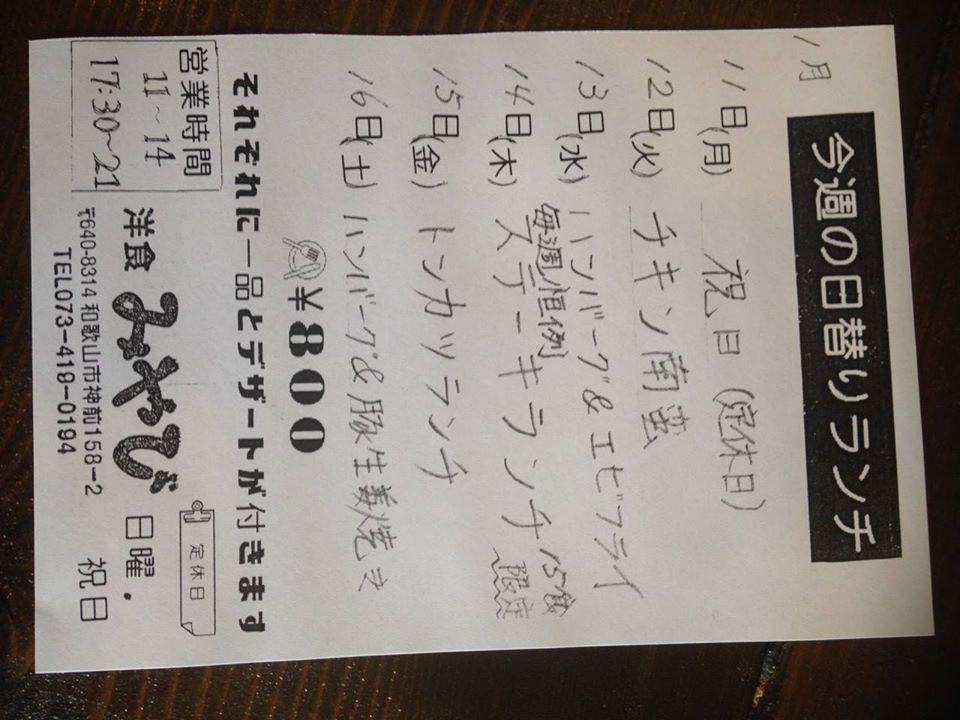 今週の日替りランチ
1月
11日(月) 祝日(定休日)
12日(火) チキン南蛮
13日(水) ハンバーグ&エビフライ
毎週恒例
14日(木) ステーキランチ 15食
限定
15日(金) トンカツランチ
16日(土) ハンバーグ&豚生姜焼き
¥800
それぞれに一品とデザートが付きます
営業時間
11~14
17:30~21
洋食 みやび
定休日
日曜.
祝日
〒640-8314 和歌山市神前158-2
TEL073-418-0194